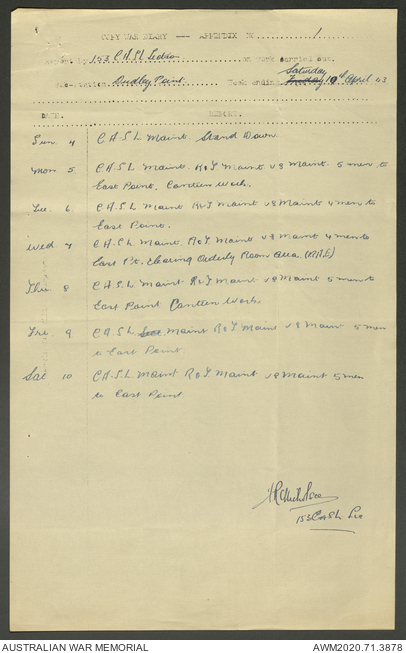 COPY WAR DIARY --- APPENDIX 1
Report by 153 C.A.S.L Section on work carried out.
Saturday
Location. Dudley Point Week ending Friday 10th April 43
DATE. REPORT.
Sun 4 C.A.S.L Maint. Stand Down.
Mon 5 C.A.S.L Maint. R&T Maint V8 Maint. 5 men to
East Point. Canteen Work.
Tue 6 C.A.S.L Maint R&T Maint V8 Maint 4 men to
East Point.
Wed 7 C.A.S.L Maint. R&T Maint V8 Maint 4 men to
East Pt. Clearing Orderly Room Area (RAE)
Thu 8 C.A.S.L Maint R&T Maint V8 Maint 5 men to
East Point Canteen Work
Fri 9 C.A.S.L Maint R&T Maint V8 Maint 5 men
to East Point
Sat 10 C.A.S.L Maint R&T Maint V8 Maint 5 men
to East Point
153 CASL
AUSTRALIAN WAR MEMORIAL AWM2020.71.3878